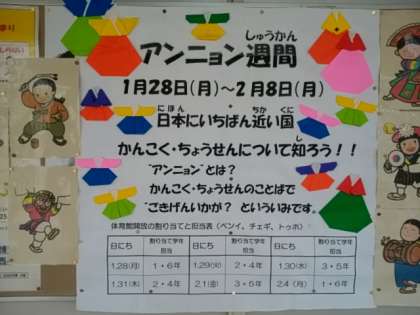 しゅうかん
アンニョン週間
1月28日(月)～2月8日(月)
にほん ちか くに
日本にいちばん近い国
し
かんこく・ちょうせんについて知ろう！！
"アンニョン"とは？
かんこく・ちょうせんのことばで
"ごきげんいかが？ といういみです。
体育館開放の割り当てと担当表（ペンイ、チェギ、トゥホ）
日にち 割り当て学年担当 日にち 割り当て学年担当 日にち 割り当て学年担当
1.28(月) 1・6年 1.29(火) 2・4年 1.30(水) 3・5年
1.31(木) 2・4年 2.1(金) 3・5年 2.4(月) 1・6年